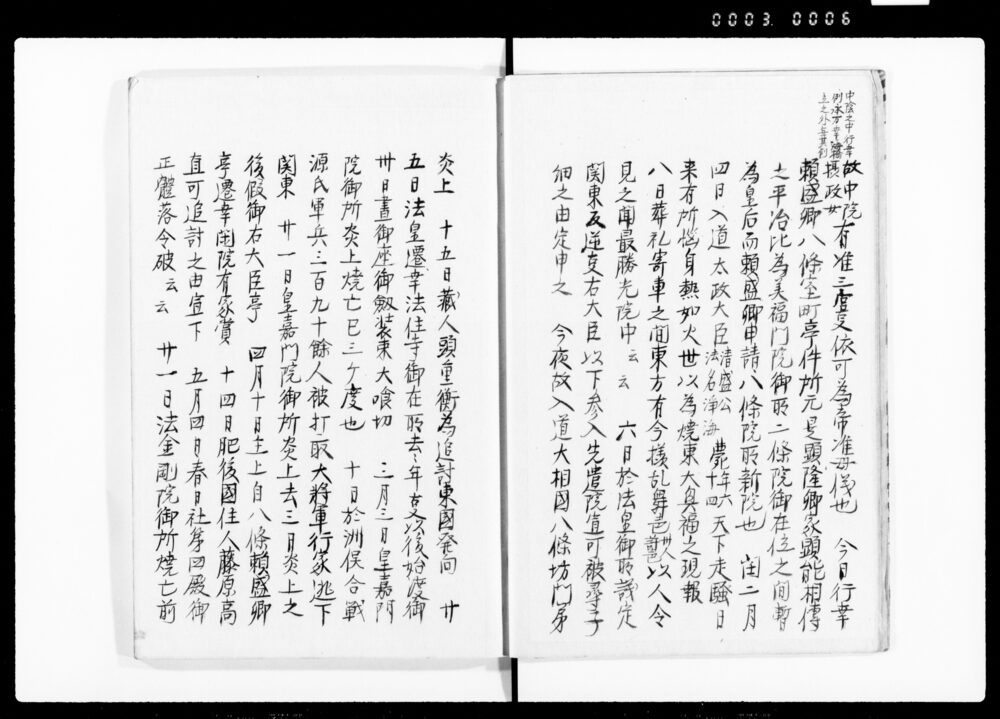 0003 0006
中陰之中行幸
例永万
立之外無其例
故中院
摂政女有准三宮夏依可為帝准母儀也 今日行幸
頼盛卿八條室町亭件所元是顕隆卿家顕能相傳
之平治比為美福門院御所二條院御在位之間暫
為皇后而頼盛卿申請八條院所新院也 閏二月
四日入道太政大臣清盛公法名浄海薨年六十四天下走騒日
来有所悩身熱如火世以為焼東大興福之現報
八日葬礼寄車之間東方有今様乱舞声世人以人令
見之聞最勝光院中云云 六日於法皇御所議定
関東反逆夏右大臣以下参入先遣院宣可被尋子
細之由定申之 今夜故入道大相国八條坊門第
炎上 十五日蔵人頭重衡為追討東國発向 廿
五日法皇遷幸法住寺御在所去年夏以後始度御
卅日晝御座御劔装束犬喰切 三月三日皇嘉門
院御所炎上焼亡已三ケ度也 十日於洲俣合戦
源氏軍兵三百九十餘人被打取大将軍行家逃下
関東 廿一日皇嘉門院御所炎上去三日炎上之
後假御右大臣亭 四月十日主上自八條頼盛卿
亭遷幸閑院有家賞 十四日肥後國住人藤原高
直可追討之由宣下 五月四日春日社第四殿御
正躰落令破云云 廿一日法金剛院御所焼亡前